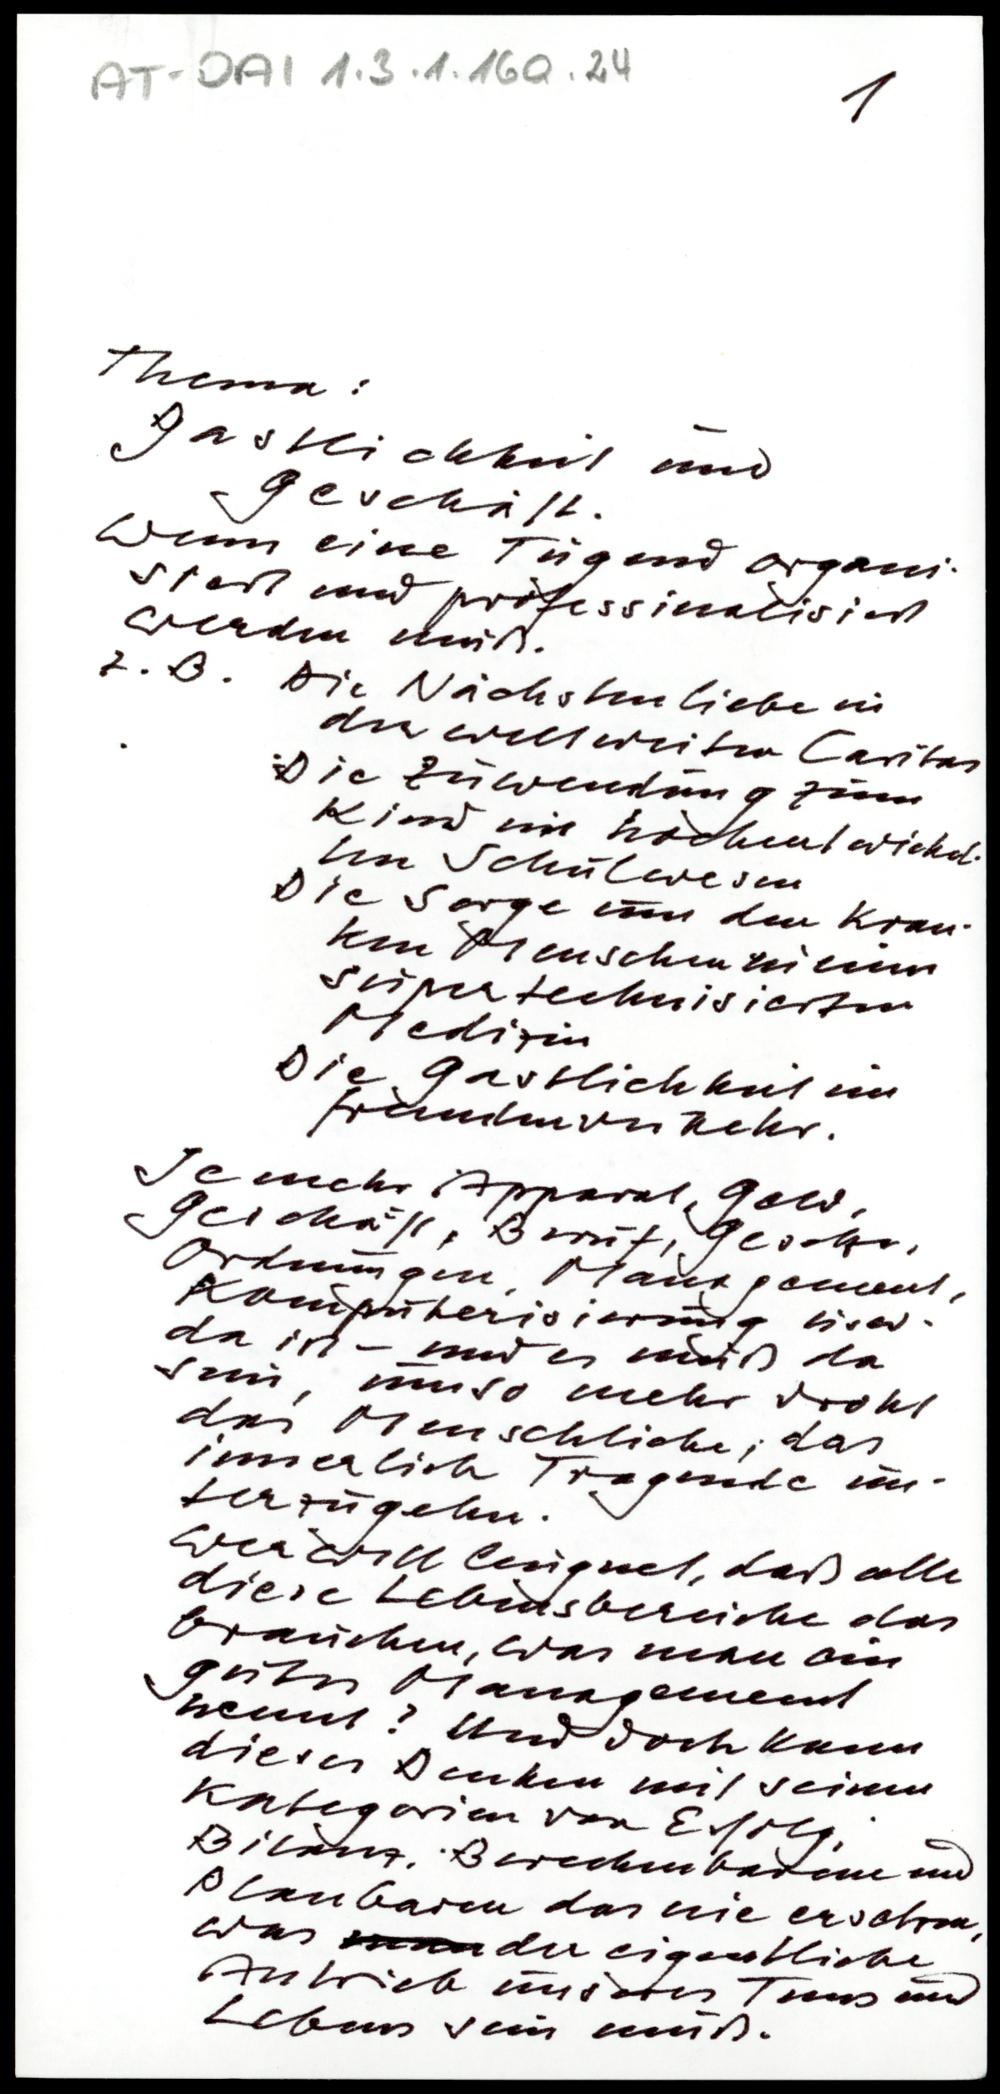 AT-DAI 1.3.1.160.24
1
Thema:
Gastlichkeit und
Geschäft.
Wenn eine Tugend organi-
siert und professinalisiert
werden muß.
z.B. Die Nächstenliebe in
der weltweiten Caritas
Die Zuwendung zum
Kind im hochentwickel-
ten Schulwesen
Die Sorge um den Kran-
ken Menschen in einer
supertechnisierten
Medizin
Die Gastlichkeit im
Fremdenverkehr.
Je mehr Apparat, Geld,
Geschäft, Beruf, Gesetze,
Ordnungen, Management,
Komputerisierung usw.
da ist – und es muß da
sein, umso mehr droht
das Menschliche, das
innerlich Tragende un-
terzugehn.
Wer will leugnen, daß alle
diese Lebensbereiche das
brauchen, was man ein
gutes Management
nennt? Und doch kann
dieses Denken mit seinen
Kategorien von Erfolg,
Bilanz, Berechenbarem und
Planbarem das nie ersetzen,
was der eigentliche
Antrieb unseres Tuns und
Lebens sein muß.